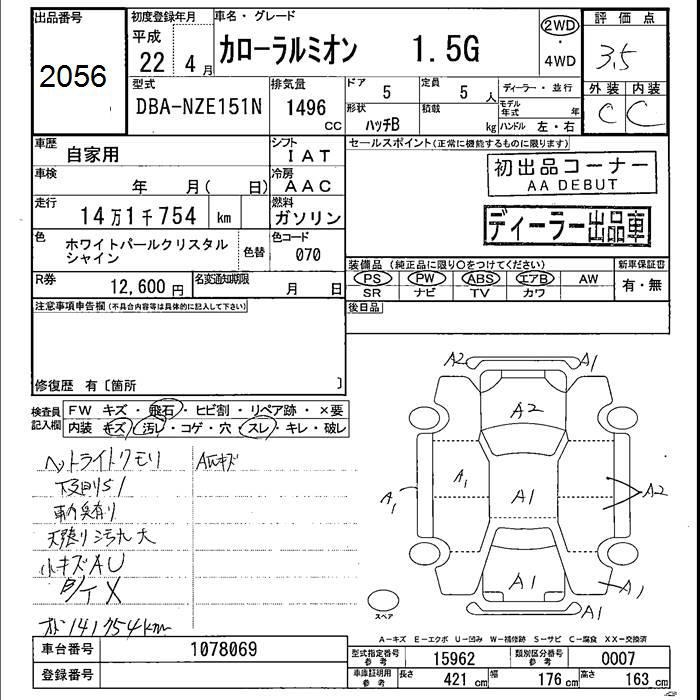 出品番号
2056
初度登録年月
平成
22 4月
車名・グレード
カローラルミオン 1.5G
2WD
・
4WD
評価点
3.5
外装 内装
C C
型式
DBA-NZE151N
排気量
1496
CC
ドア
5
定員
5 人
形状
ハッチB
積載
kg
ディーラー・並行
モデル年式 年
ハンドル 左・右
車歴
自家用
シフト
IAT
車検
年 月( 日)
冷房
AAC
走行
14万1千754 km
燃料
ガソリン
色
ホワイトパールクリスタル
シャイン
色替
色コード
070
R券
12,600円
名変通知期限
月 日
セールスポイント(正常に機能するものに限ります)
初出品コーナー
AA DEBUT
ディーラー出品車
装備品(純正品に限り○をつけてください)
新車保証書
PS PW ABS エアB AW
SR ナビ TV カワ
有・無
注意事項申告欄(不具合内容等は具体的に記入して下さい)
後日品
修復歴 有〔箇所 〕
検査員
記入欄
FW キズ・飛石・ヒビ割・リペア跡・×要
内装 キズ・汚レ・コゲ・穴・スレ・キレ・破レ
ヘットライトクモリ
AWキズ
天張り汚れ大
小キズAU
141754km
A2 A1
A2
A1 A1 A1 A2
A1 A1
A1
スペア
A-キズ E-エクボ U-凹み W-補修跡 S-サビ C-腐食 XX-交換済
車台番号
1078069
登録番号
型式指定番号
参考
15962
類別区分番号
参考
0007
車庫証明用
参考
長さ
421 cm
幅
176 cm
高さ
163 cm